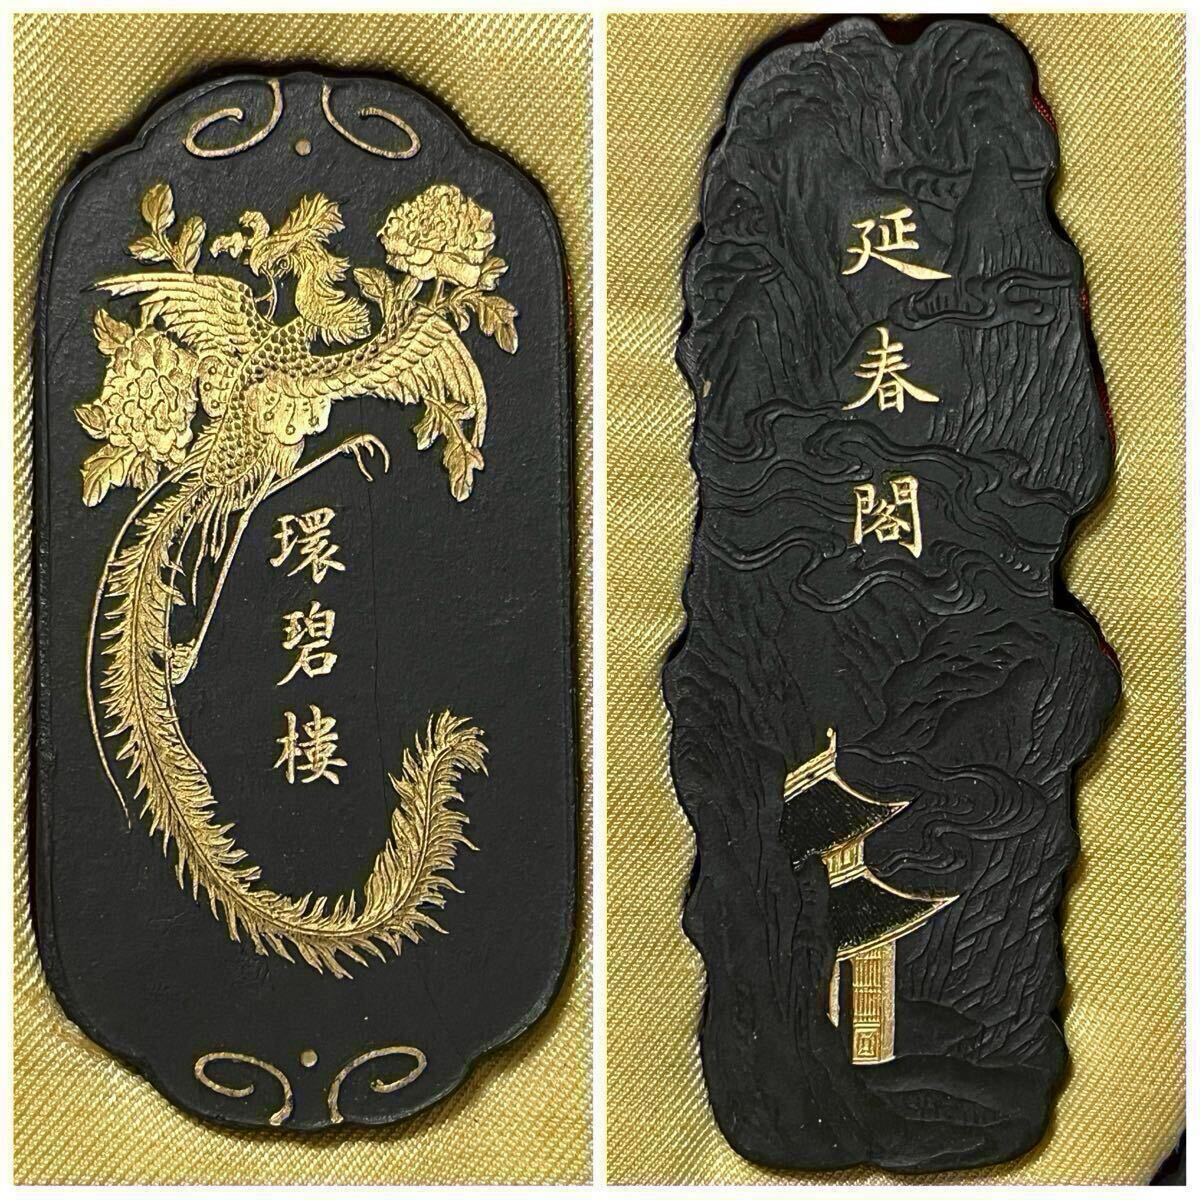 環碧樓
延春閣